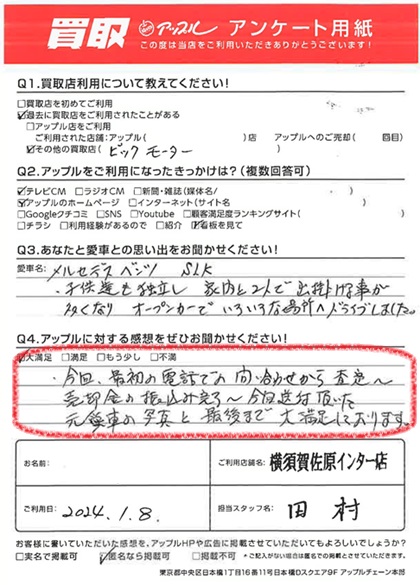 買取 アップル アンケート用紙
この度は当店をご利用いただきありがとうございます!
Q1.買取店利用について教えてください!
□買取店を初めてご利用
☑過去に買取店をご利用されたことがある
□アップル店をご利用
ご利用された店舗:アップル( )店 アップルへのご売却( 回目)
☑その他の買取店( ビック モーター )
Q2.アップルをご利用になったきっかけは?(複数回答可)
☑テレビCM □ラジオCM □新聞・雑誌(媒体名/ )
☑アップルのホームページ □インターネット(サイト名 )
□Googleクチコミ □SNS □Youtube □顧客満足度ランキングサイト( )
□チラシ □利用経験があるので □紹介 ☑看板を見て
Q3.あなたと愛車との思い出をお聞かせください!
愛車名:メルセデス ベンツ SLK
・子供達も独立し 家内と2人で出掛ける事が
多くなり オープンカーでいろいろな場所へドライブしました。
Q4.アップルに対する感想をぜひお聞かせください!
☑大満足 □満足 □もう少し □不満
・今回、最初の電話での問い合わせから査定〜
売却金の振込み完了〜今回送付頂いた
元愛車の写真と最後まで大満足しております。
お名前:
ご利用店舗名: 横須賀佐原インター店
ご利用日: 2024.1.8.
担当スタッフ名: 田村
お客様に書いていただいた感想を、アップルHPや広告に掲載させていただいてもよろしいでしょうか?
□実名で掲載可 ☑匿名なら掲載可 □掲載不可 *ご記入がない場合は匿名での掲載とさせていただきます。
東京都中央区日本橋1丁目16番11号日本橋Dスクエア9F アップルチェーン本部